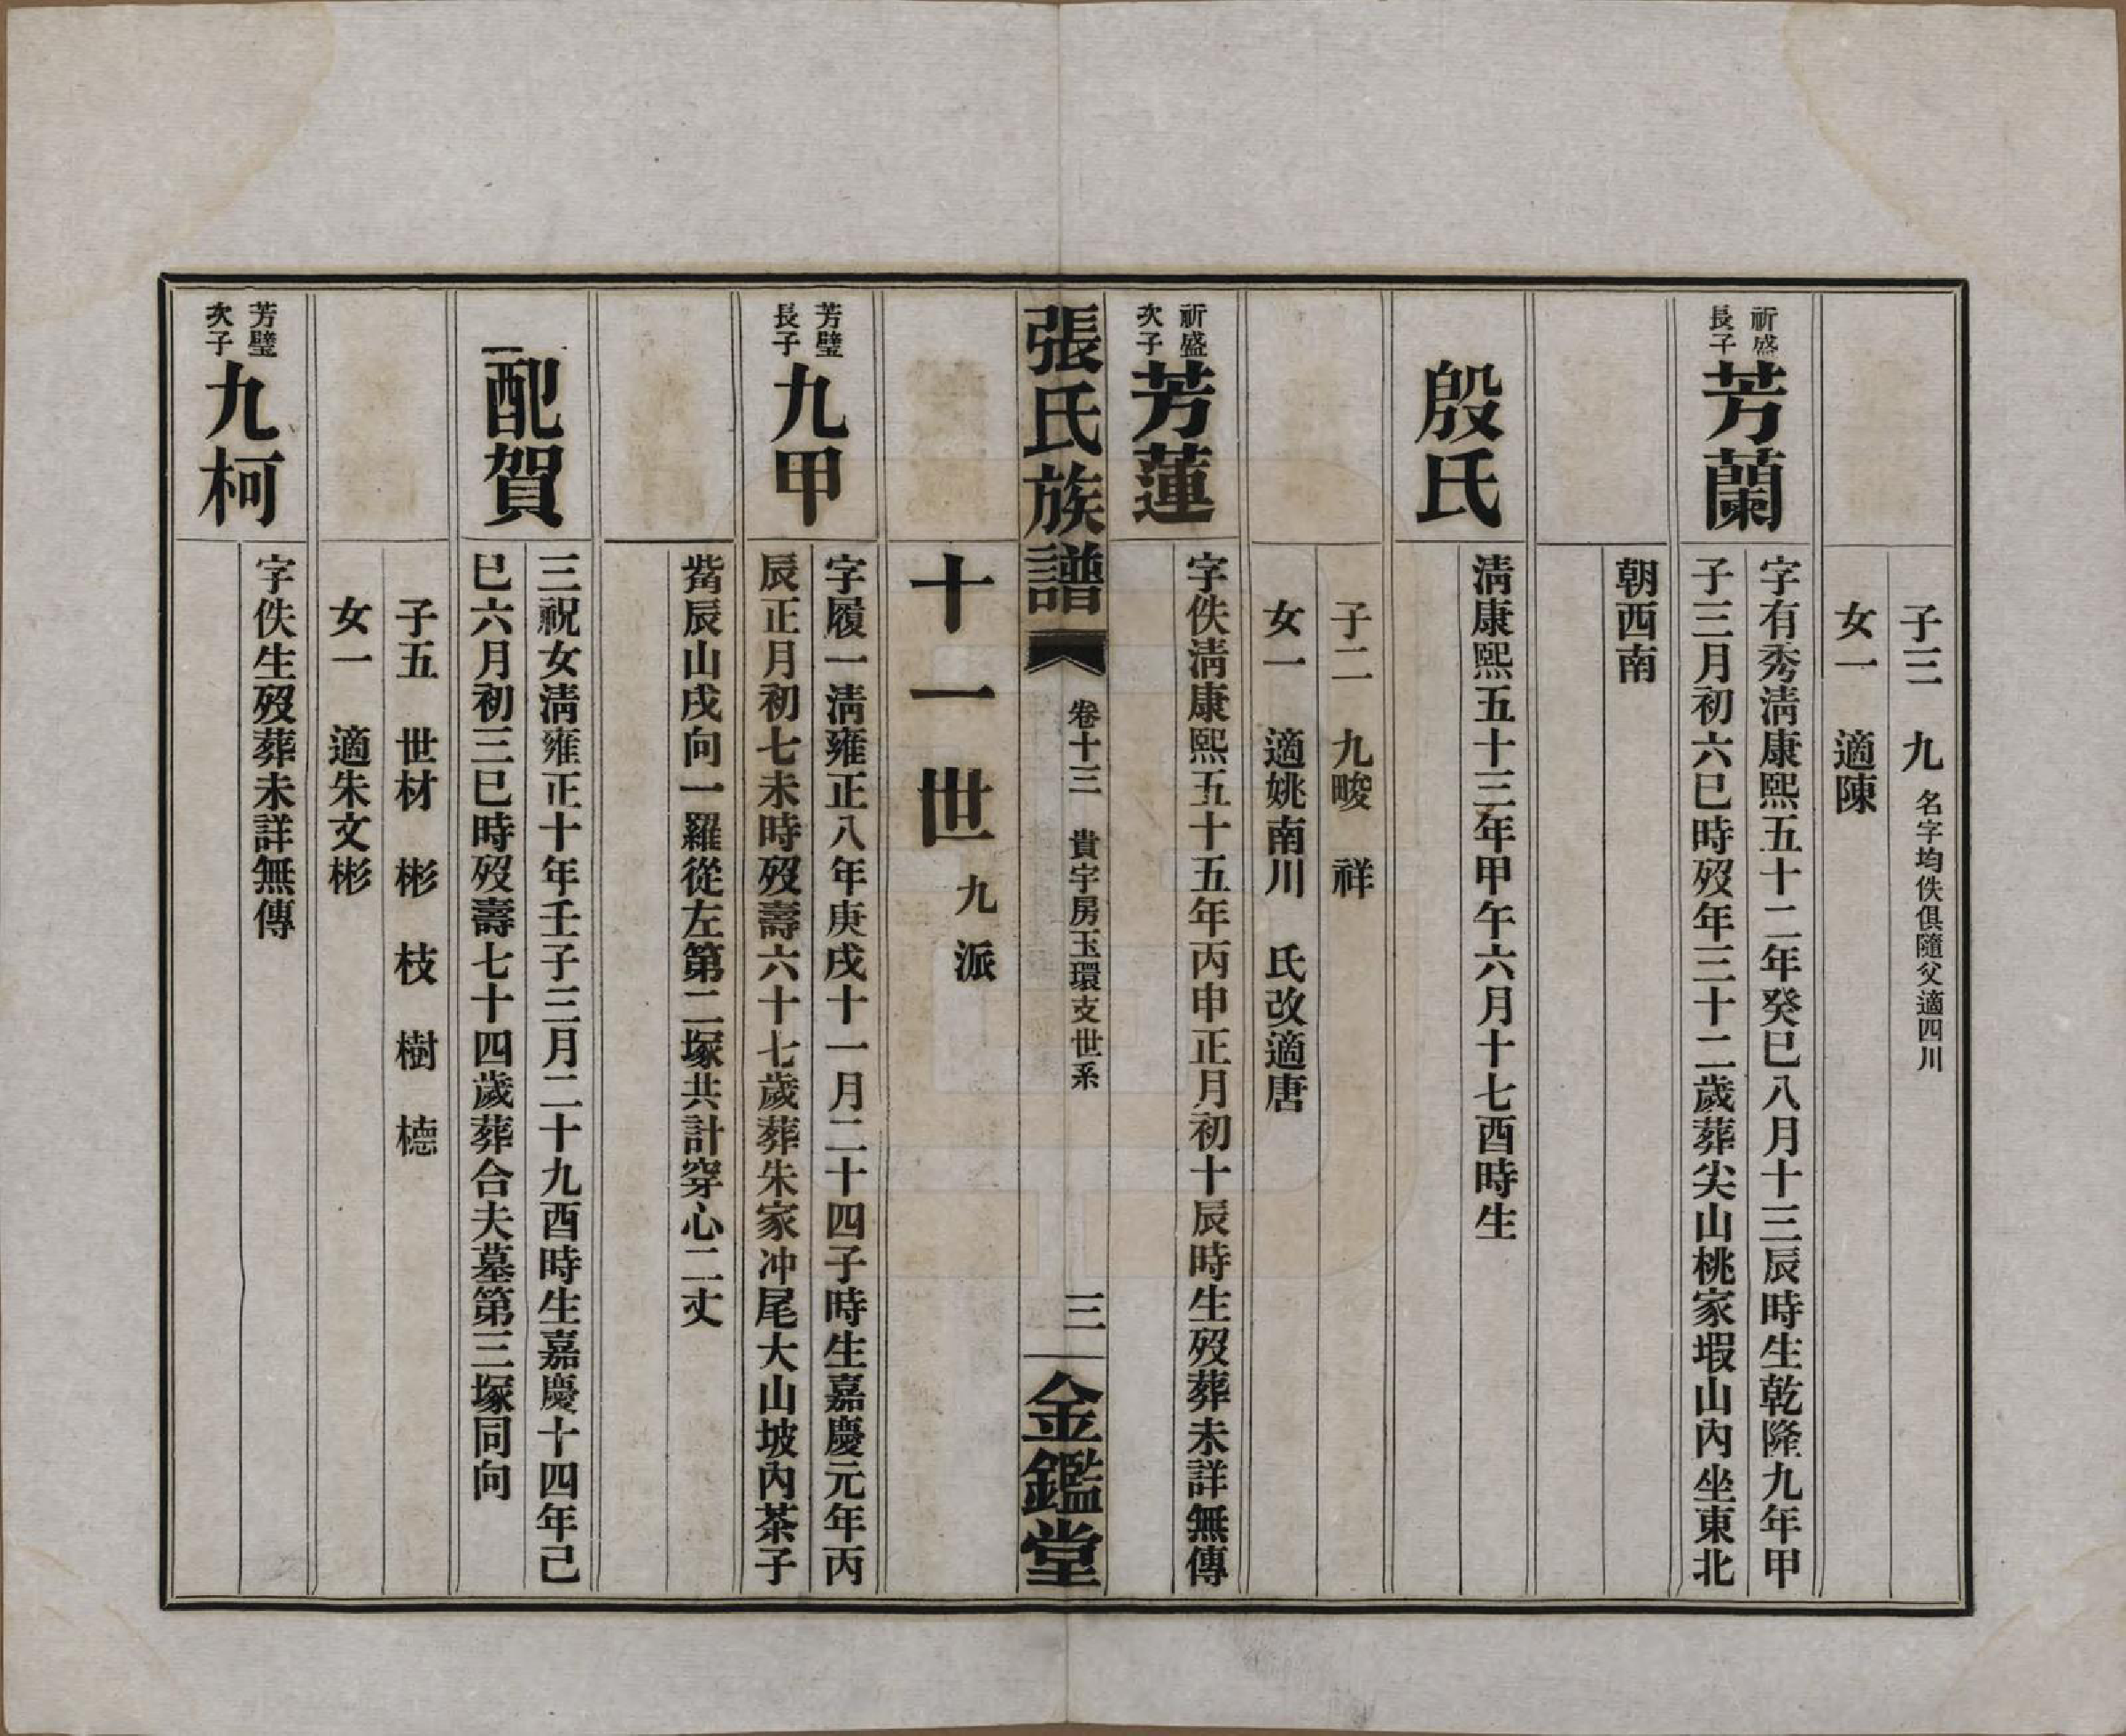 子三　九　名字均佚俱隨父適四川
女一　適陳
祈盛
長子
芳蘭
字有秀淸康熙五十二年癸巳八月十三辰時生乾隆九年甲
子三月初六巳時歿年三十二歲葬尖山桃家塅山內坐東北
朝西南
殷氏
淸康熙五十三年甲午六月十七酉時生
子二　九畯　祥
女一　適姚南川　氏改適唐
祈盛
次子
芳蓮
字佚淸康熙五十五年丙申正月初十辰時生歿葬未詳無傳
張氏族譜
卷十三　貴宇房玉環支世系
三
金鑑堂
十一世　九派
芳璧
長子
九甲
字履一淸雍正八年庚戌十一月二十四子時生嘉慶元年丙
辰正月初七未時歿壽六十七歲葬朱家冲尾大山坡內茶子
辰山戌向一羅從左第二塚共計穿心二丈
配賀
三祝女淸雍正十年壬子三月二十九酉時生嘉慶十四年己
巳六月初三巳時歿壽七十四歲葬合夫墓第三塚同向
子五　世材　彬　枝　樹　橞
女一　適朱文彬
芳璧
次子
九柯
字佚生歿葬未詳無傳